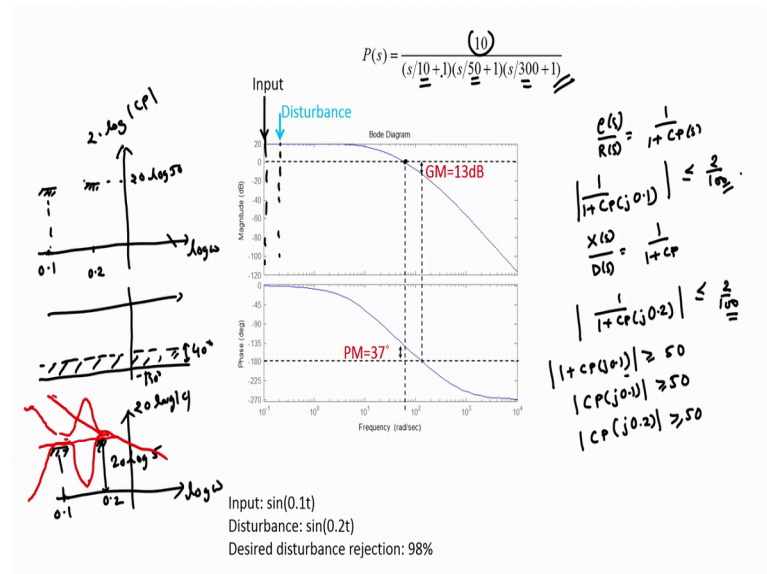 P(s) = (10) / (s/10+1)(s/50+1)(s/300+1)
Input
Disturbance
Bode Diagram
20
0
-20
-40
-60
-80
-100
-120
Magnitude (dB)
GM=13dB
0
-45
-90
-135
-180
-225
-270
Phase (deg)
PM=37°
10^-1
10^0
10^1
10^2
10^3
10^4
Frequency (rad/sec)
2·log|CP|
20 log 50
log ω
0.1
0.2
40°
20 log
20 log 5
log ω
0.1
0.2
e(s)/R(s) = 1/1+CP(s)
|1/1+CP(j0.1)| ≤ 2/100
X(s)/D(s) = 1/1+CP
|1/1+CP(j0.2)| ≤ 2/100
|1+CP(j0.1)| ≥ 50
|CP(j0.1)| ≥ 50
|CP(j0.2)| ≥ 50
Input: sin(0.1t)
Disturbance: sin(0.2t)
Desired disturbance rejection: 98%